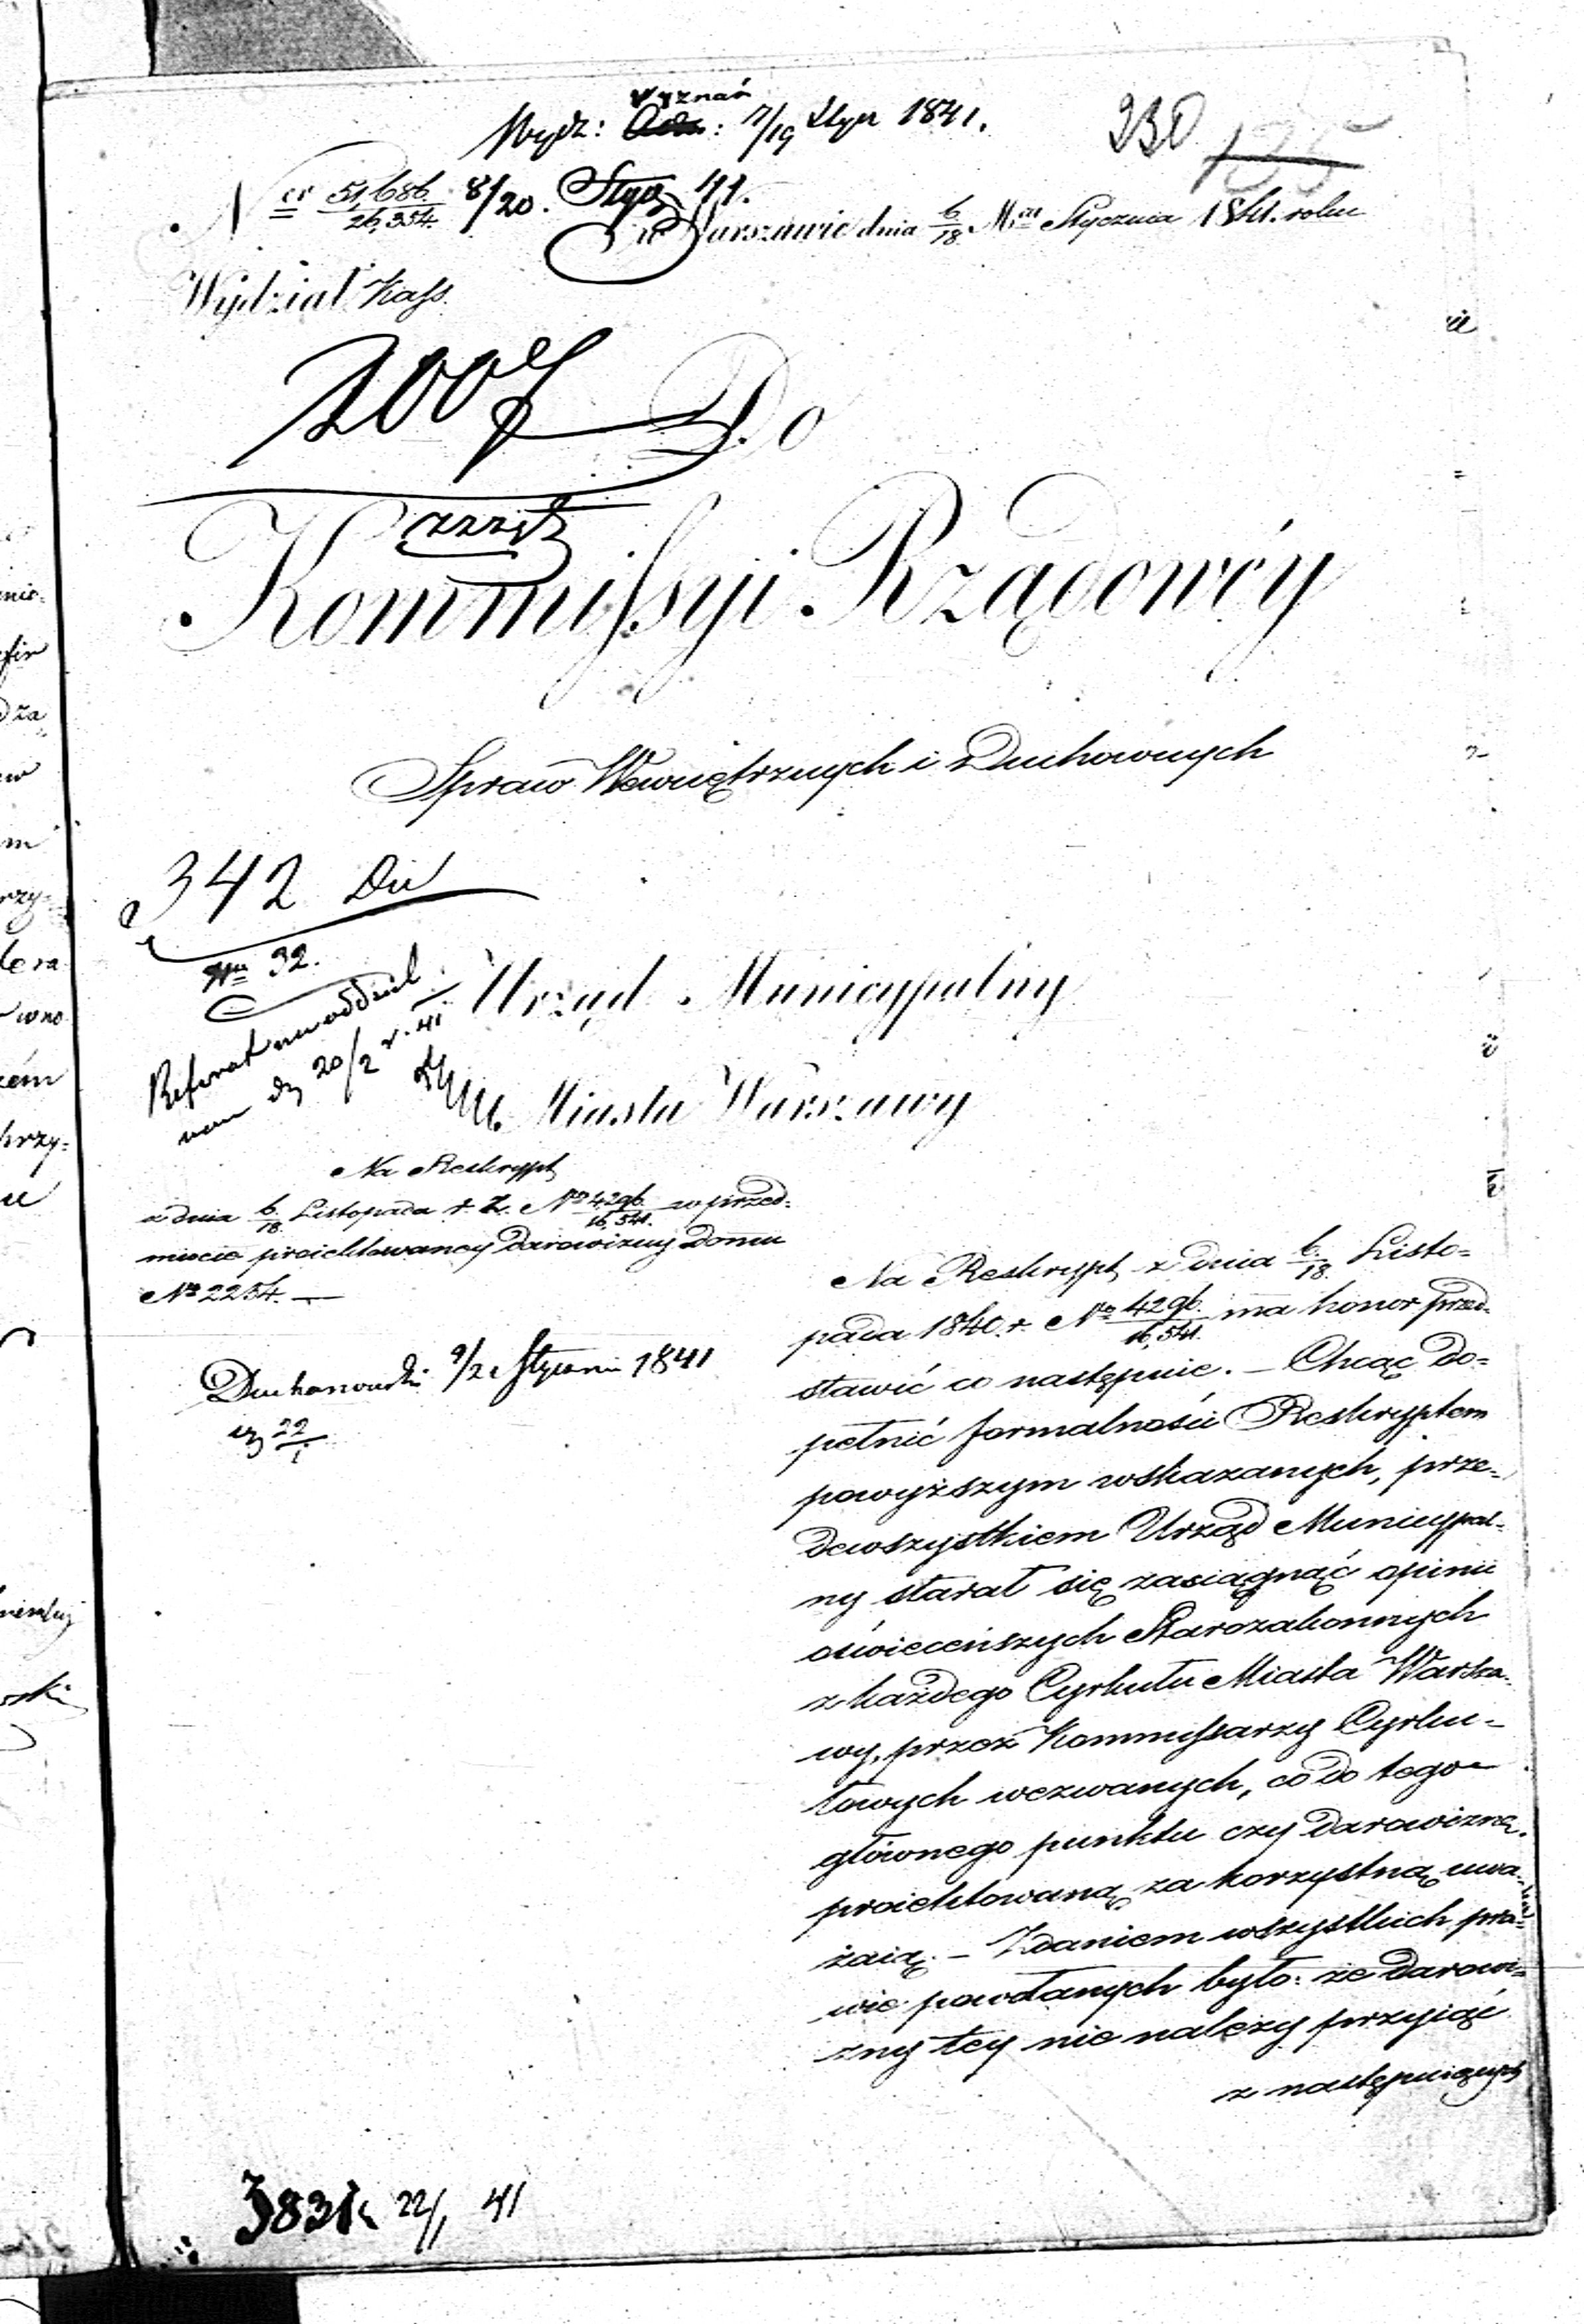 Wyznań
Wydz: : 7/19 Stycz 1841.
230
135
Nr 51,686./26,354. 8/20. Stycz 41.
w Warszawie dnia 6/18. Mca Stycznia 1841. roku
Wydział Kass.
Do
Kommissyi Rządowéy
Spraw Wewnętrznych i Duchownych
342 Du
Nr 32.
Referat na oddziel
nym 20/2 r. 41
Urząd Municypalny
Miasta Warszawy
Na Reskrypt
z dnia 6/18. Listopada r. z. No 4296./16,541. w przed=
miocie proiektowaney darowizny Domu
No 2254. —
Duchanowski 9/21 Stycznia 1841
22/1
Na Reskrypt z dnia 6/18. Listo=
pada 1840. r. No 4296./16,541. ma honor przed=
stawić co następuie. – Chcąc do=
pełnić formalności Reskryptem
powyższym wskazanych, prze=
dewszystkiem Urząd Municypal=
ny starał się zasiągnąć opinii
oświeceńszych Starozakonnych
z każdego Cyrkułu Miasta Warsza=
wy, przez Kommissarzy Cyrku=
łowych wezwanych, co do tego
głównego punktu czy darowiznę
proiektowaną za korzystną uwa=
żaią. – Zdaniem wszystkich pra=
wie powołanych było: że darowi=
zny tey nie należy przyiąć
z następuiących
22/1 41